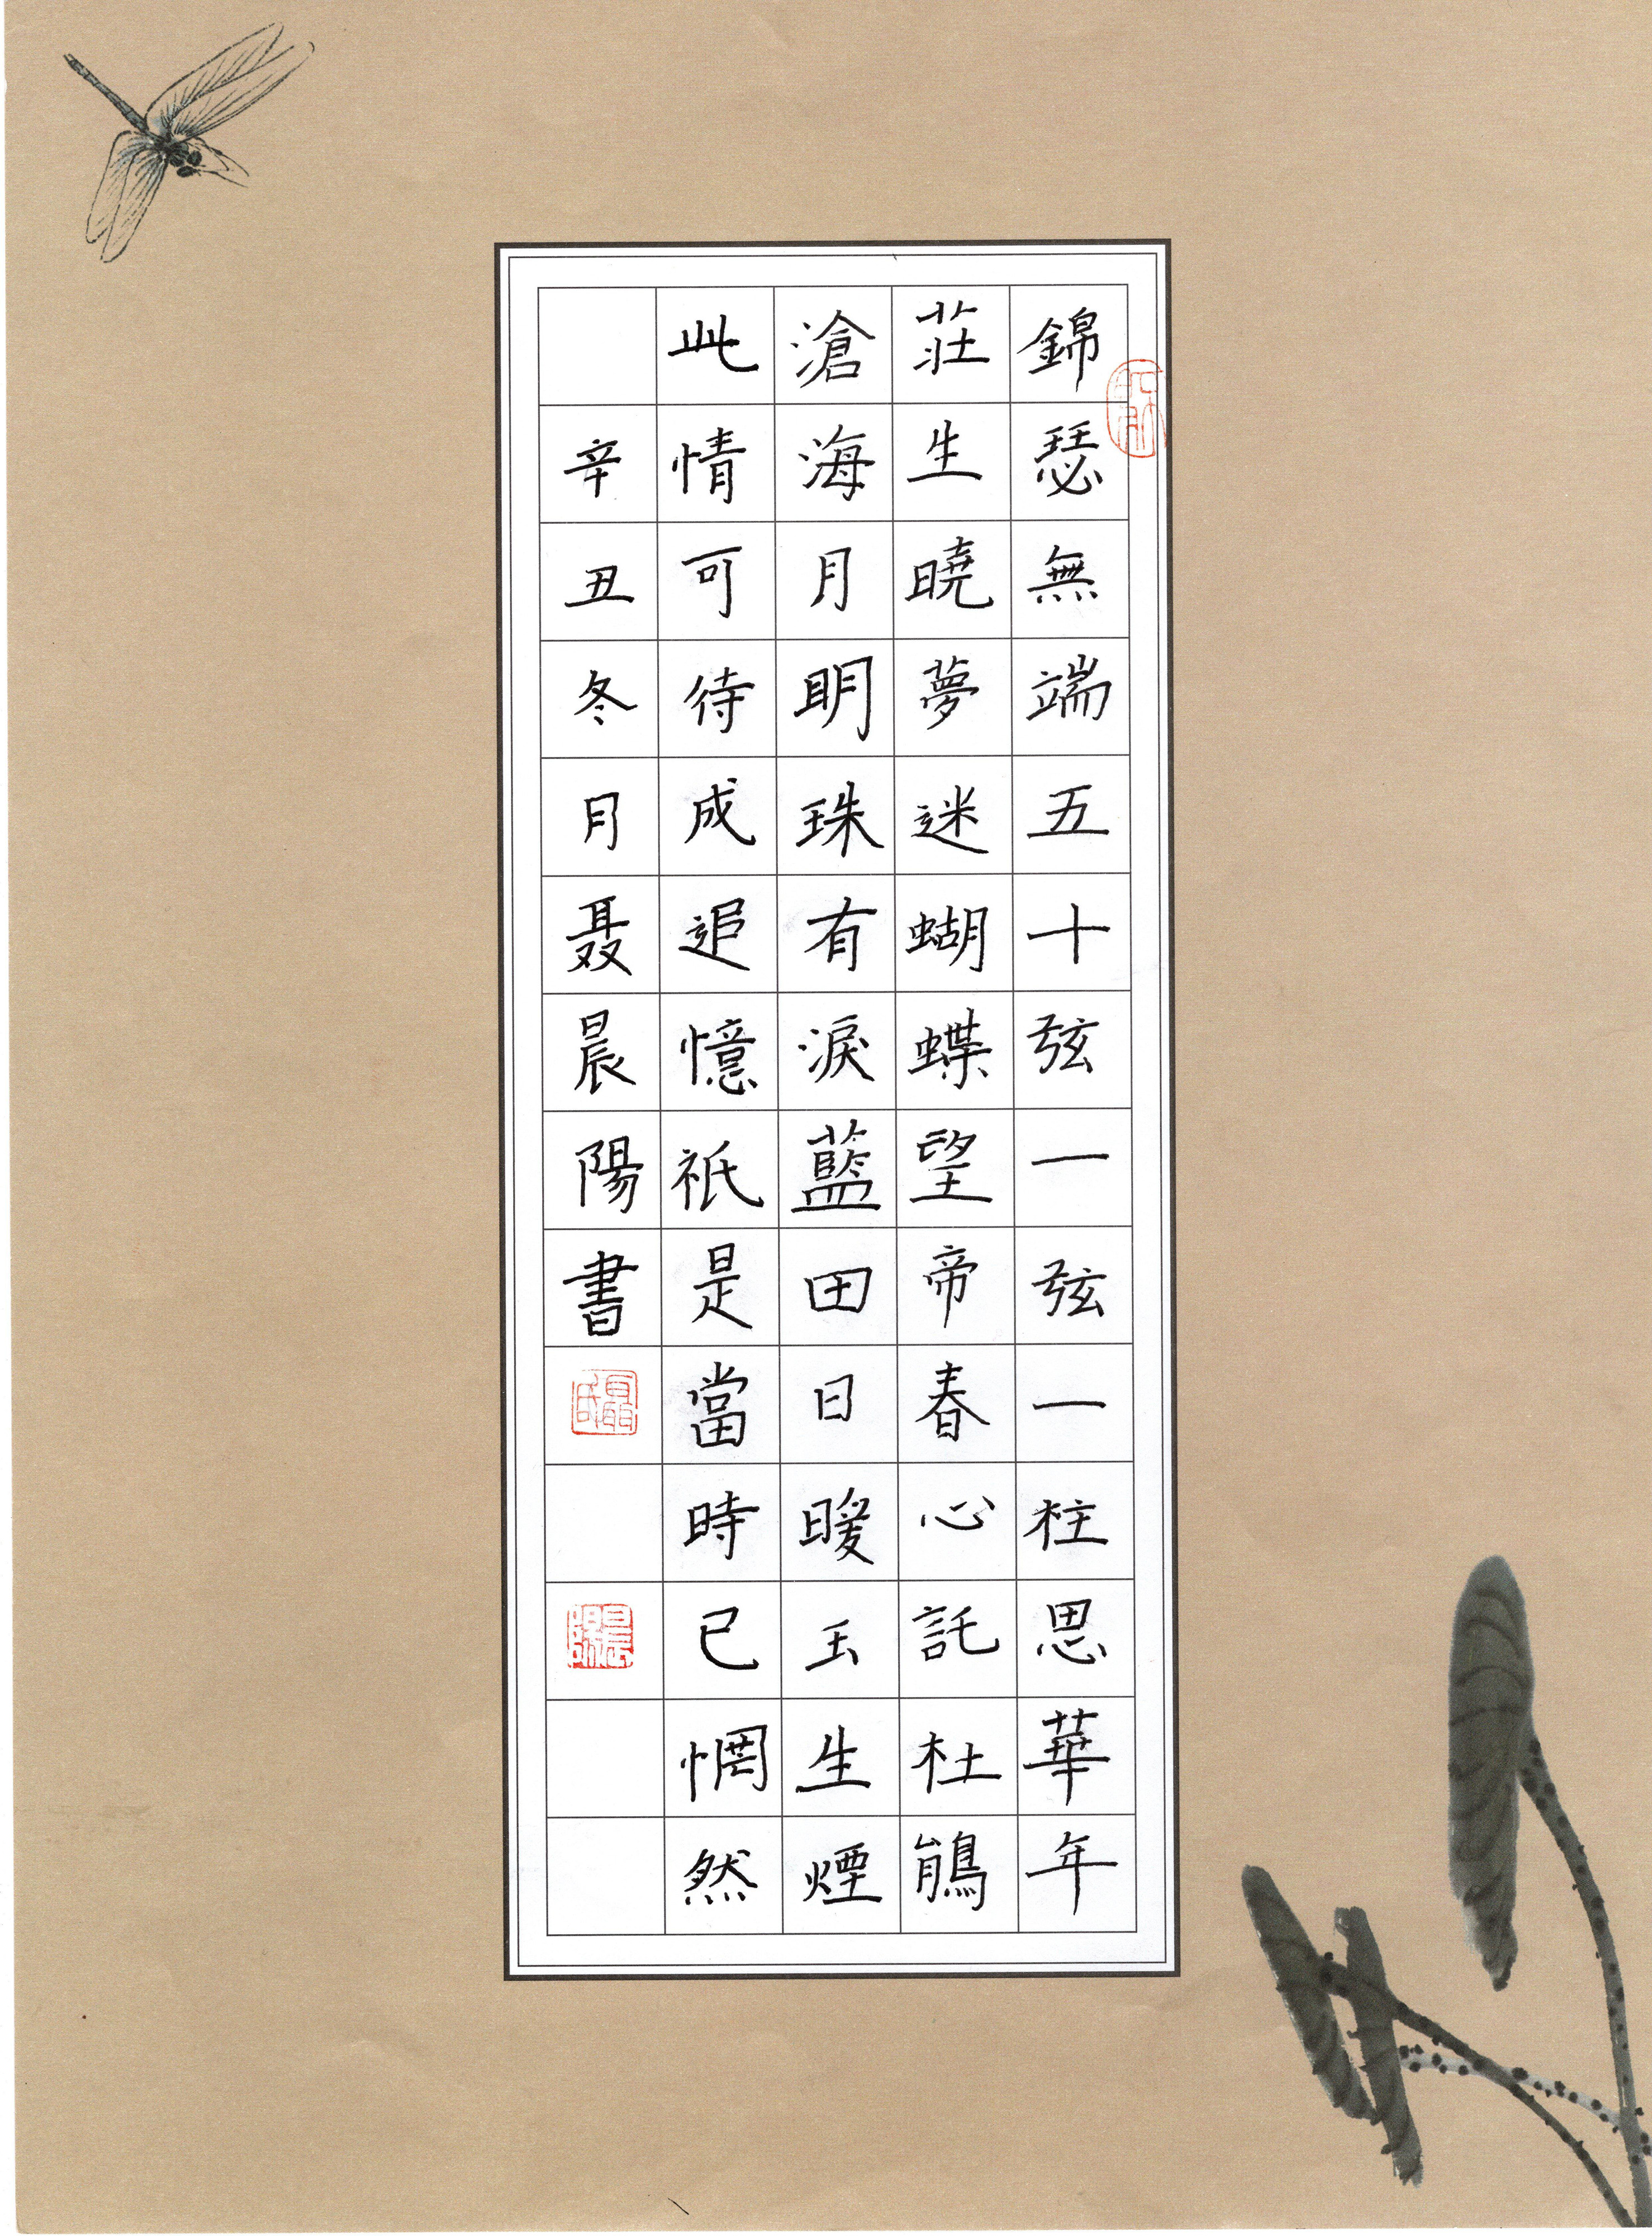 錦瑟無端五十弦一弦一柱思華年
莊生曉夢迷蝴蝶望帝春心託杜鵑
滄海月明珠有淚藍田日暖玉生煙
此情可待成追憶祇是當時已惘然
辛丑冬月聂晨陽書